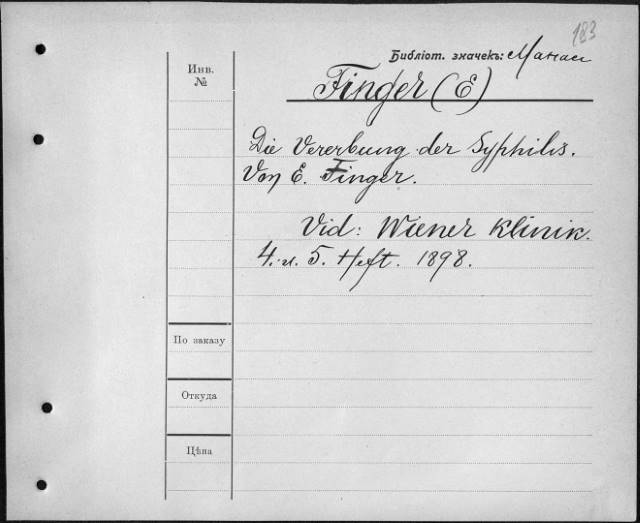 183
Библіот. значекъ:
Инв.
№
Finger (E)
Die Vererbung der Syphilis.
Von E. Finger.
Vid: Wiener Klinik.
4. u. 5. Heft. 1898.
По заказу
Откуда
Цѣна